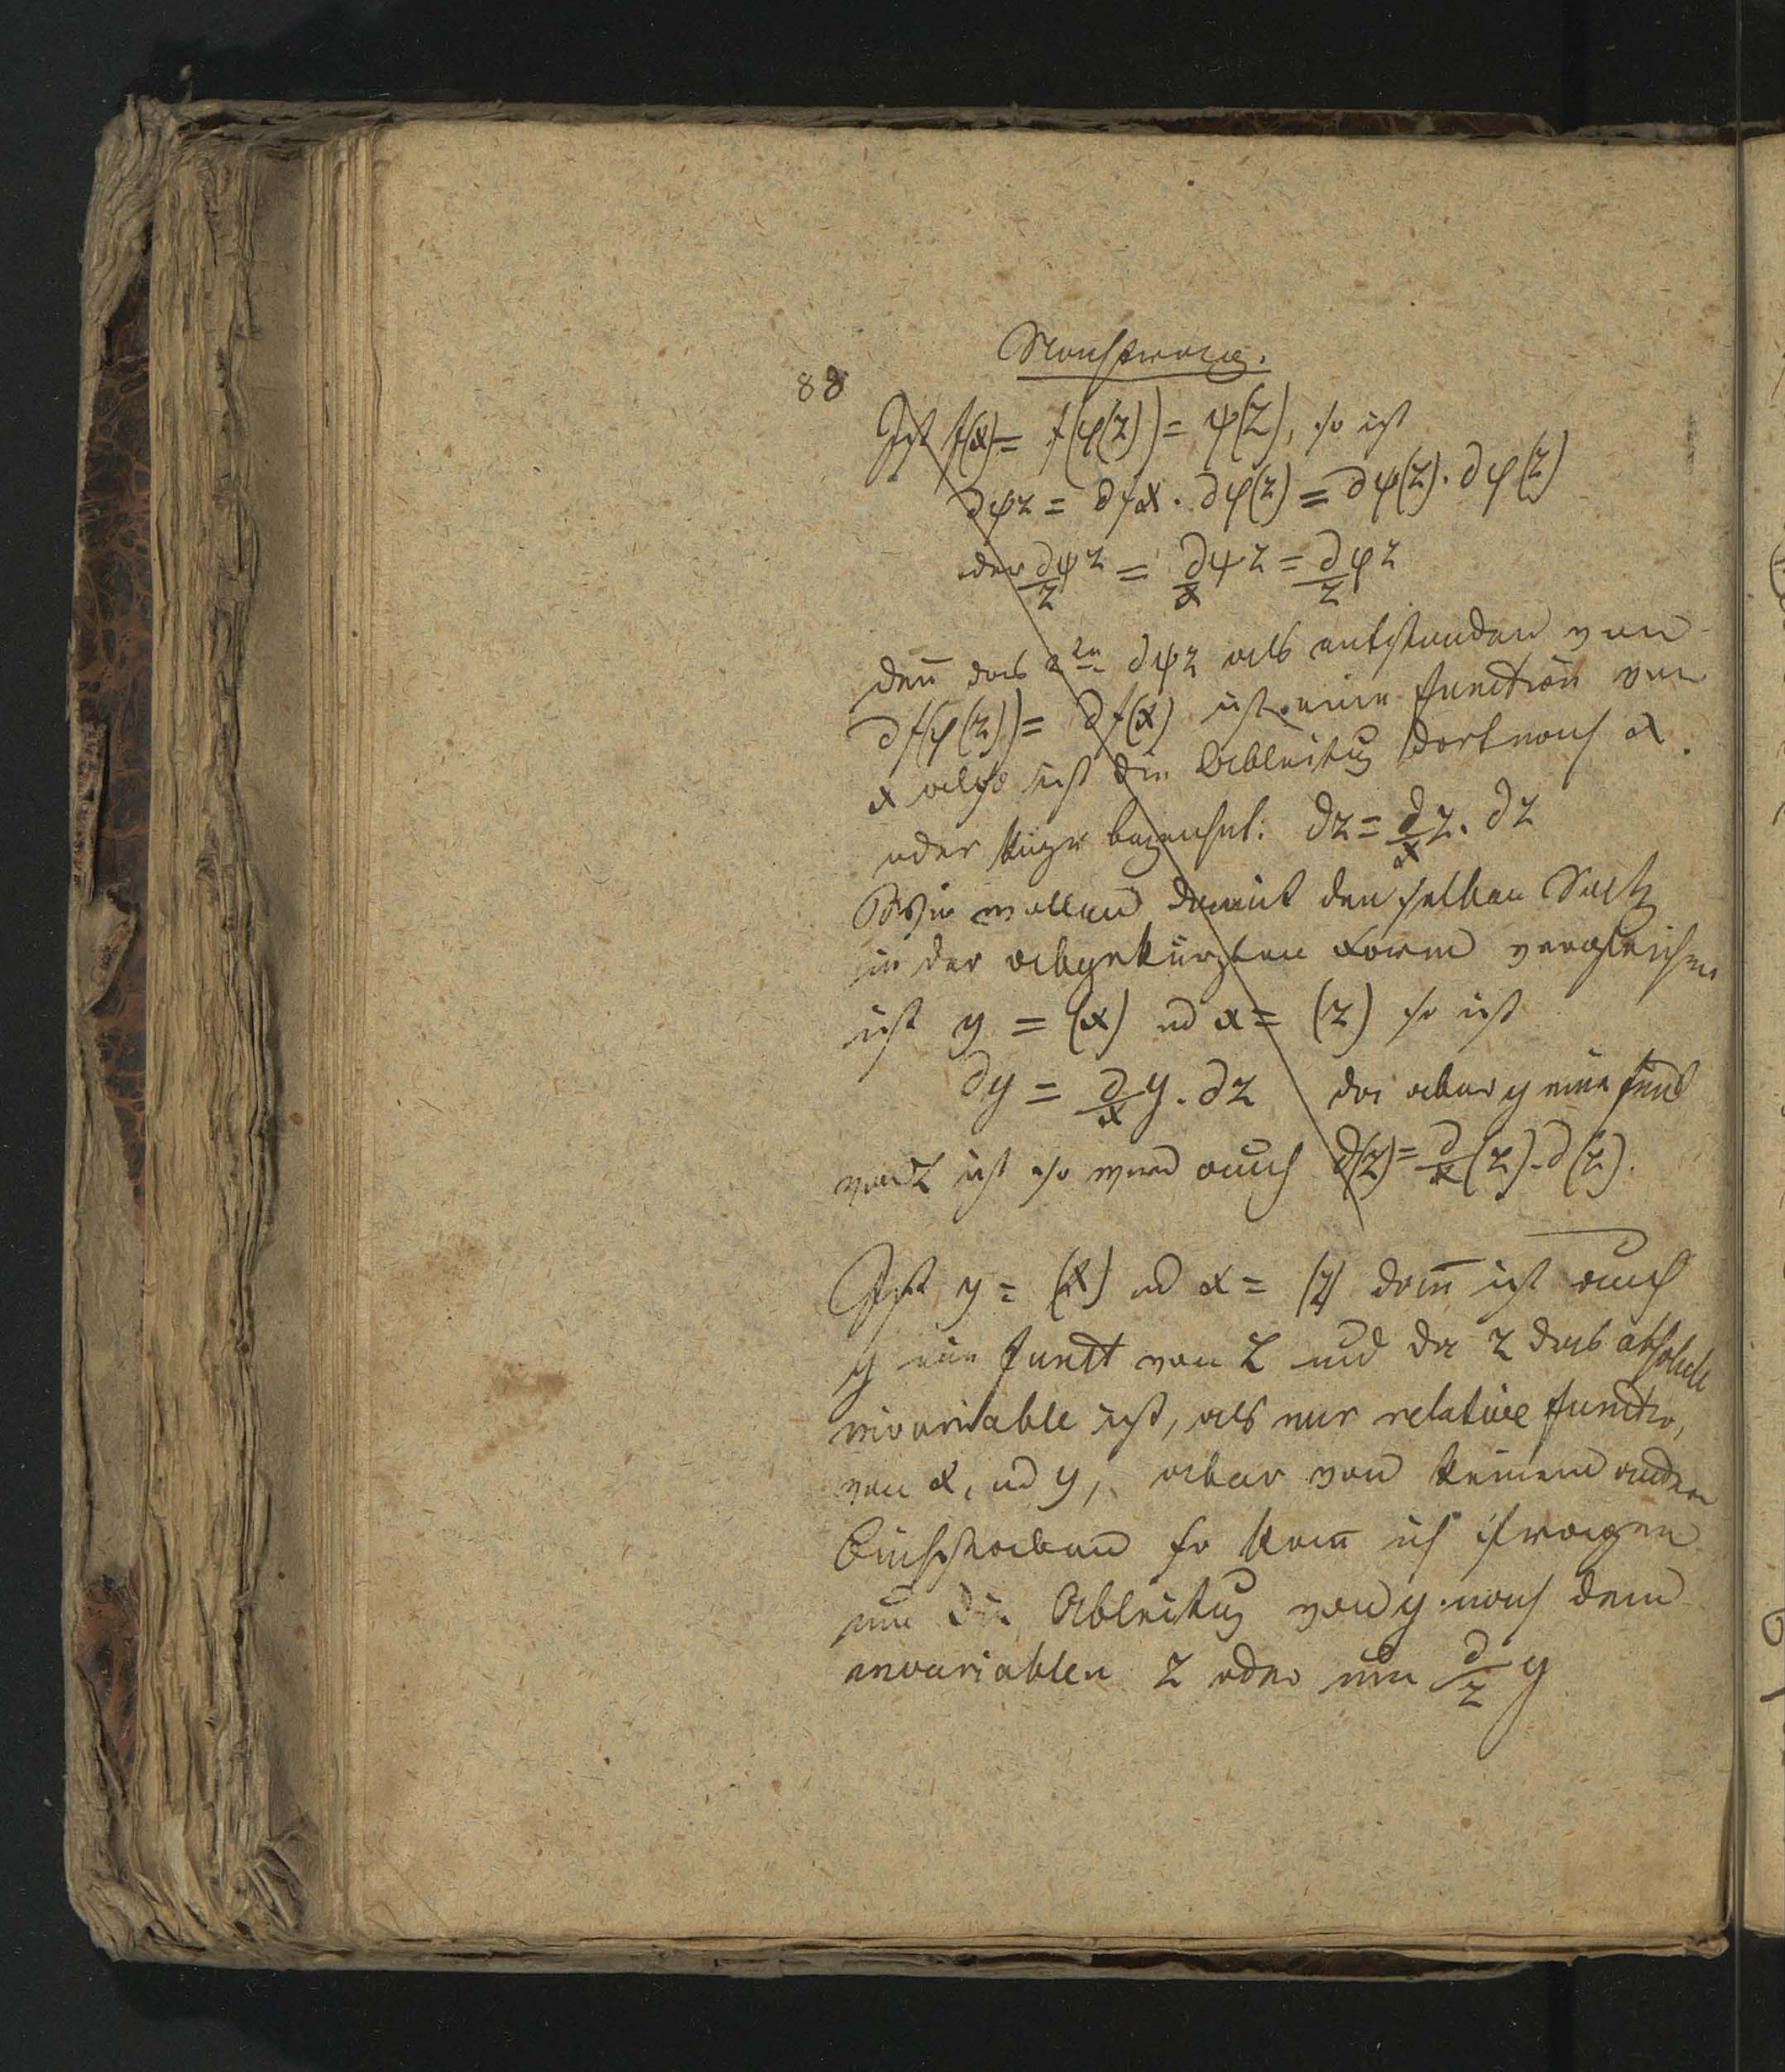 Nachtrag.
88
Ist f(x) = f(φ(z)) = ψ(z), so ist
∂ψz = ∂fx . ∂φ(z) = ∂ψ(z) . ∂φ(z)
oder ∂/z ψz = ∂/x ψz = ∂/z φz
deñ das 2te ∂ψz als entstanden von
∂f(φ(z)) = ∂f(x) ist eine function von
x also ist die Ableitug dort nach x.
oder kürzer bezeichnet: ∂z = ∂/x z . ∂z
Wir wollen damit denselben Satz
in der abgekürzten Form vergleichen
ist y = (x) ud x = (z) so ist
∂y = ∂/x y . ∂z da aber y eine funct
von z ist so wird auch ∂(z) = ∂/x (z) . ∂(z).
Ist y = (x) ud x = (z) dañ ist auch
y eine funct von z und da z das absolute
invariable ist, als nur relative functio,
von x, ud y, aber von keinem andern
Buchstaben so kañ ich fragen
um die Ableitug von y nach dem
invariablen z oder um ∂/z y